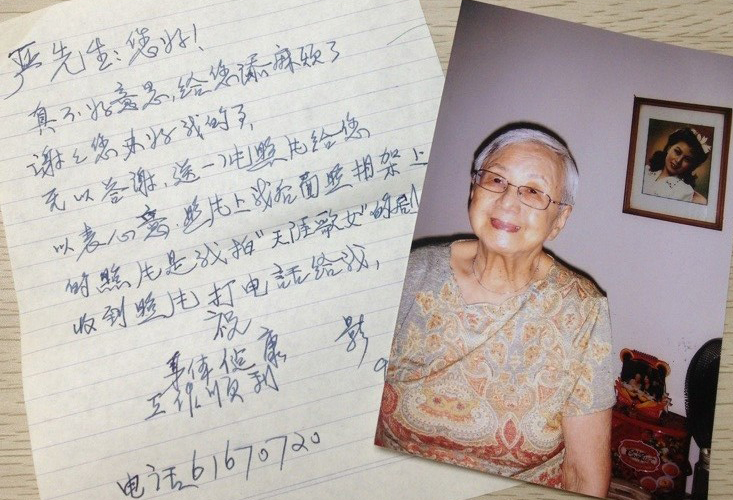 严先生:您好!
真不好意思,给您添麻烦了
谢谢您来好我的了,
无以答谢,送一张照片给您
以表心意.照片上我后面照相架上
的照片是我拍"天涯歌女"的剧
收到照片打电话给我,
祝
身体健康
工作顺利
影
电话61670720